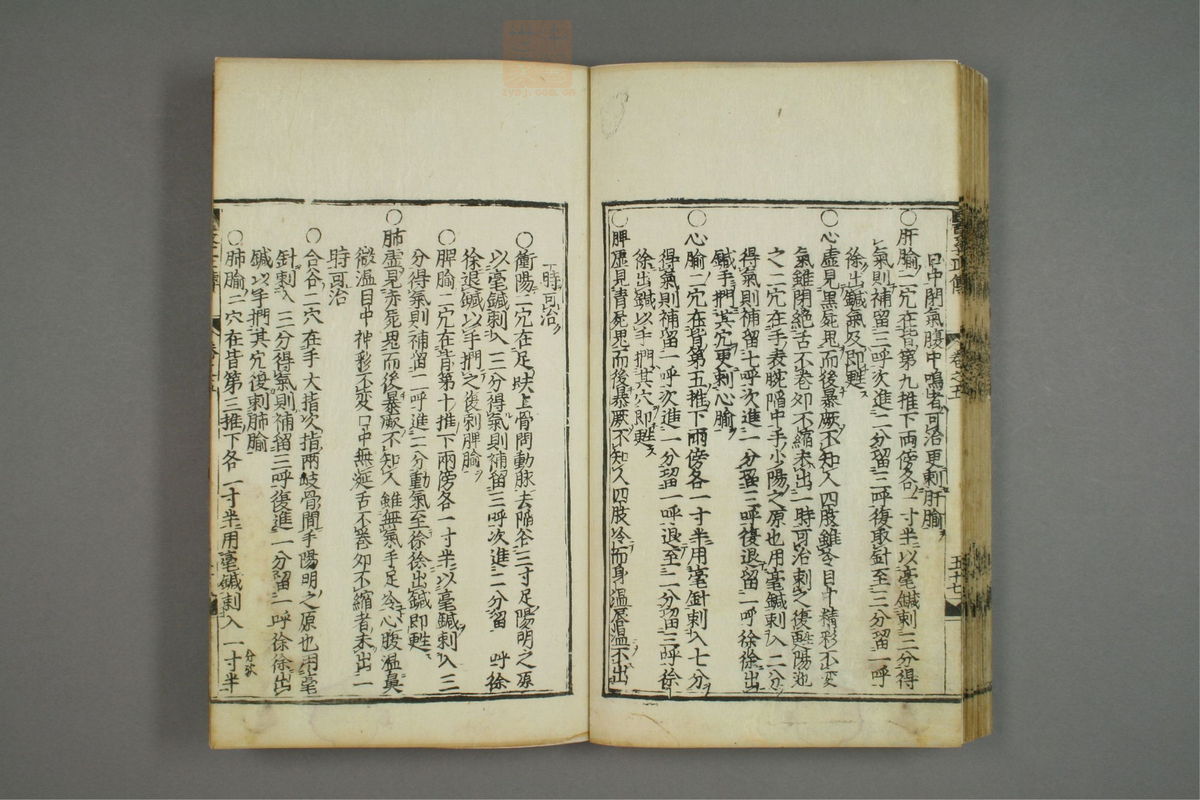 口中閉氣腹中鳴者可治更刺肝腧
○肝腧二穴在背第九椎下兩傍各一寸半以毫鍼刺三分得
氣則補留三呼次進二分留三呼復取針至三分留一呼
徐出鍼氣及即甦
○心虛見黑屍鬼而後暴厥不知人四肢雖冷目中精彩不变
氣雖閉絶舌不卷夘不縮未出一時可治刺之復甦陽池
之二穴在手表腕陷中手少陽之原也用毫鍼刺入二分
得氣則補留七呼次進一分留三呼復退留一呼徐徐出
鍼手捫其穴更刺心腧
○心腧二穴在背第五推下兩傍各一寸半用毫針刺入七分
得氣則補留一呼次進一分留一呼退至二分留三呼徐
徐出鍼以手捫其穴即甦
○脾虛見青屍鬼而後暴厥不知人四肢冷而身溫唇溫不出
一時可治
○衝陽二穴在足趺上骨間動脉去陷谷三寸足陽明之原
以毫鍼刺入三分得氣則補留三呼次進二分留一呼徐
徐退鍼以手捫之後刺脾腧
○脾腧二穴在背第十推下兩傍各一寸半以毫鍼刺入三
分得氣則補留二呼進二分動氣至徐徐出鍼即甦
○肺虛見赤屍鬼而後暴厥不知人雖無氣手足冷心腹溫鼻
微温目中神彩不変口中無涎舌不卷夘不縮者未出一
時可治
○合谷二穴在手大指次指兩歧骨間手陽明之原也用毫
針刺入三分得氣則補留三呼復進二分留一呼徐徐出
鍼以手捫其穴後刺肺腧
○肺腧二穴在背第三推下各一寸半用毫鍼刺入一寸半
卷之五
五十七